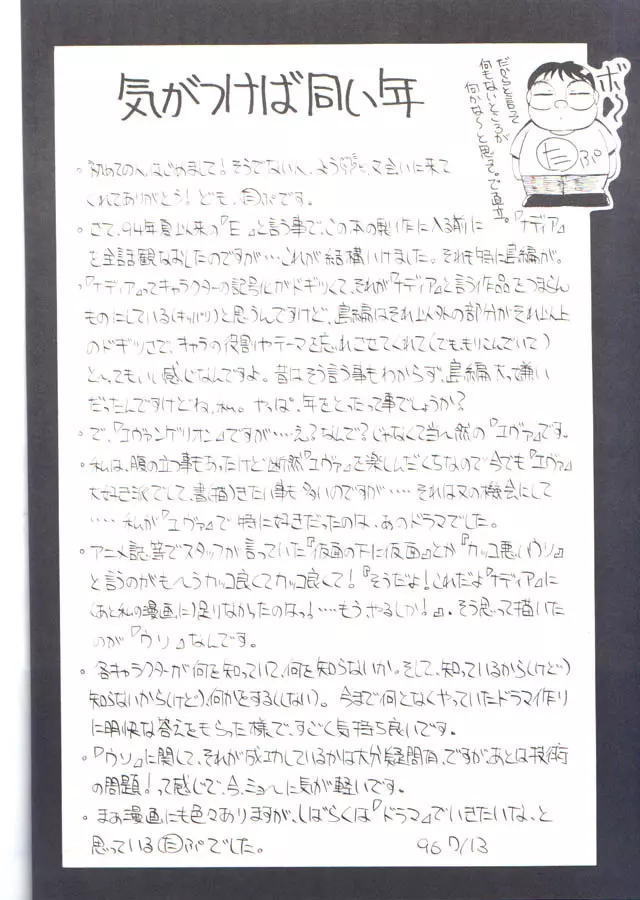 気がつけば同い年
ボ〜
だからと言って
何もないところが
何かな〜と思って。で直立。
た ぷ
・初めての人、はじめまして！そうでない人、よう、又会いに来て
くれてありがとう！ども、たぷです。
・さて、94年夏以来の『E』と言う事で、この本の製作に入る前に『ナディア』
を全話観なおしたのですが…これが結構いけました。それも特に島編が。
・『ナディア』ってキャラクターの記号化がドギツくて、それが『ナディア』と言う作品をつまらん
ものにしている(キッパリ)と思うんですけど、島編はそれ以外の部分がそれ以上
のドギツさで、キャラの役割やテーマを忘れさせてくれて(でももりこんでいて)
とってもいい感じなんですよ。昔はそう言う事もわからず、島編大っ嫌い
だったんですけどね、私。やっぱ、年をとったって事でしょうか？
・で、『エヴァンゲリオン』ですが……え？なんで？じゃなくて当然の『エヴァ』です。
・私は、腹の立つ事もあったけど断然『エヴァ』を楽しんだくちなので今でも『エヴァ』
大好き派でして、書(描)きたい事も多いのですが……それは又の機会にして
……私が『エヴァ』で特に好きだったのは、あのドラマでした。
・アニメ誌等でスタッフが言っていた『仮面の下に仮面』とか『カッコ悪いウソ』
と言うのがも〜うカッコ良くてカッコ良くて！『そうだよ！これだよ『ナディア』に
(あと私の漫画に)足りなかったのはっ！……もう、やるしか！』。そう思って描いた
のが『ウソ』なんです。
・各キャラクターが何を知っていて、何を知らないか。そして、知っているから(けど)
知らないから(けど)、何かをする(しない)。今まで何となくやっていたドラマ作り
に明快な答えをもらった様で、すごく気持ち良いです。
・『ウソ』に関して、それが成功しているかは大分疑問有、ですが、あとは技術
の問題！って感じで、今、ミョ〜に気が軽いです。
・まあ漫画にも色々ありますが、しばらくは『ドラマ』でいきたいな、と
思っているたぷでした。
96 7/13